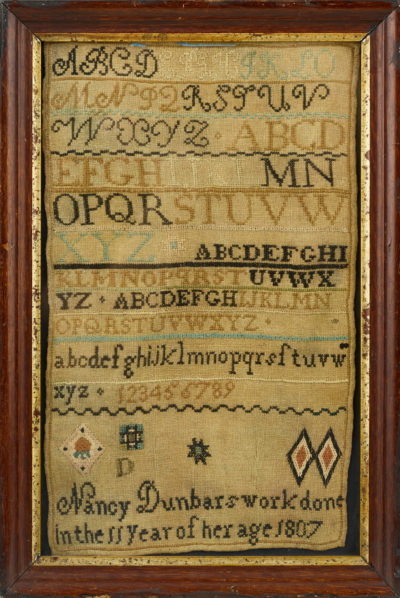 ABCD IKLV
MNPQRSTUV
WXYZ ABCD
EFGH MN
OPQRSTUVW
XYZ ABCDEFGHI
KLMNOPQRSTUVWX
YZ ABCDEFGHIJKLMN
OPQRSTUVWXYZ
abcdefghijklmnopqrsſtuvw
xyz 123456789
D
Nancy Dunbars work done
in the 11 year of her age 1807